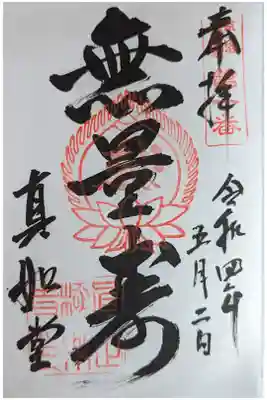 奉拝
令和四年
五月二日
無量寿
真如堂